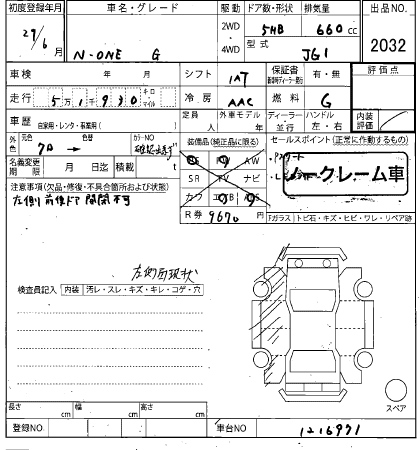 初度登録年月 車名・グレード 駆動 ドア数・形状 排気量 出品NO.
27/6月 N-ONE G 2WD・4WD 5HB 660cc 2032
型式 JG1
車検 年 月 シフト IAT 保証書 有・無 評価点
走行 5万1千930 キロ・マイル 冷房 AAC 燃料 G
車歴 自家用・レンタ・事業用( ) 定員 人 外車モデル 年 ディーラー・並行 ハンドル 左・右 内装評価
外色 元色 色替 カラーNO 確認出来ず 装備品(純正品に限る) セールスポイント(正常に作動するもの)
名義変更期限 月 日迄 積載 t
PS PW AW
SR TV ナビ
カワ
R券 9670
ノークレーム車
注意事項(欠品・修復・不具合箇所および状態)
左側 前後ドア 開閉不可
「ガラス」トビ石・キズ・ヒビ・ワレ・リペア跡
左側面現状
検査員記入 内装 汚レ・スレ・キズ・キレ・コゲ・穴
スペア
長さ cm 幅 cm 高さ cm
登録NO. 車台NO. 1216971